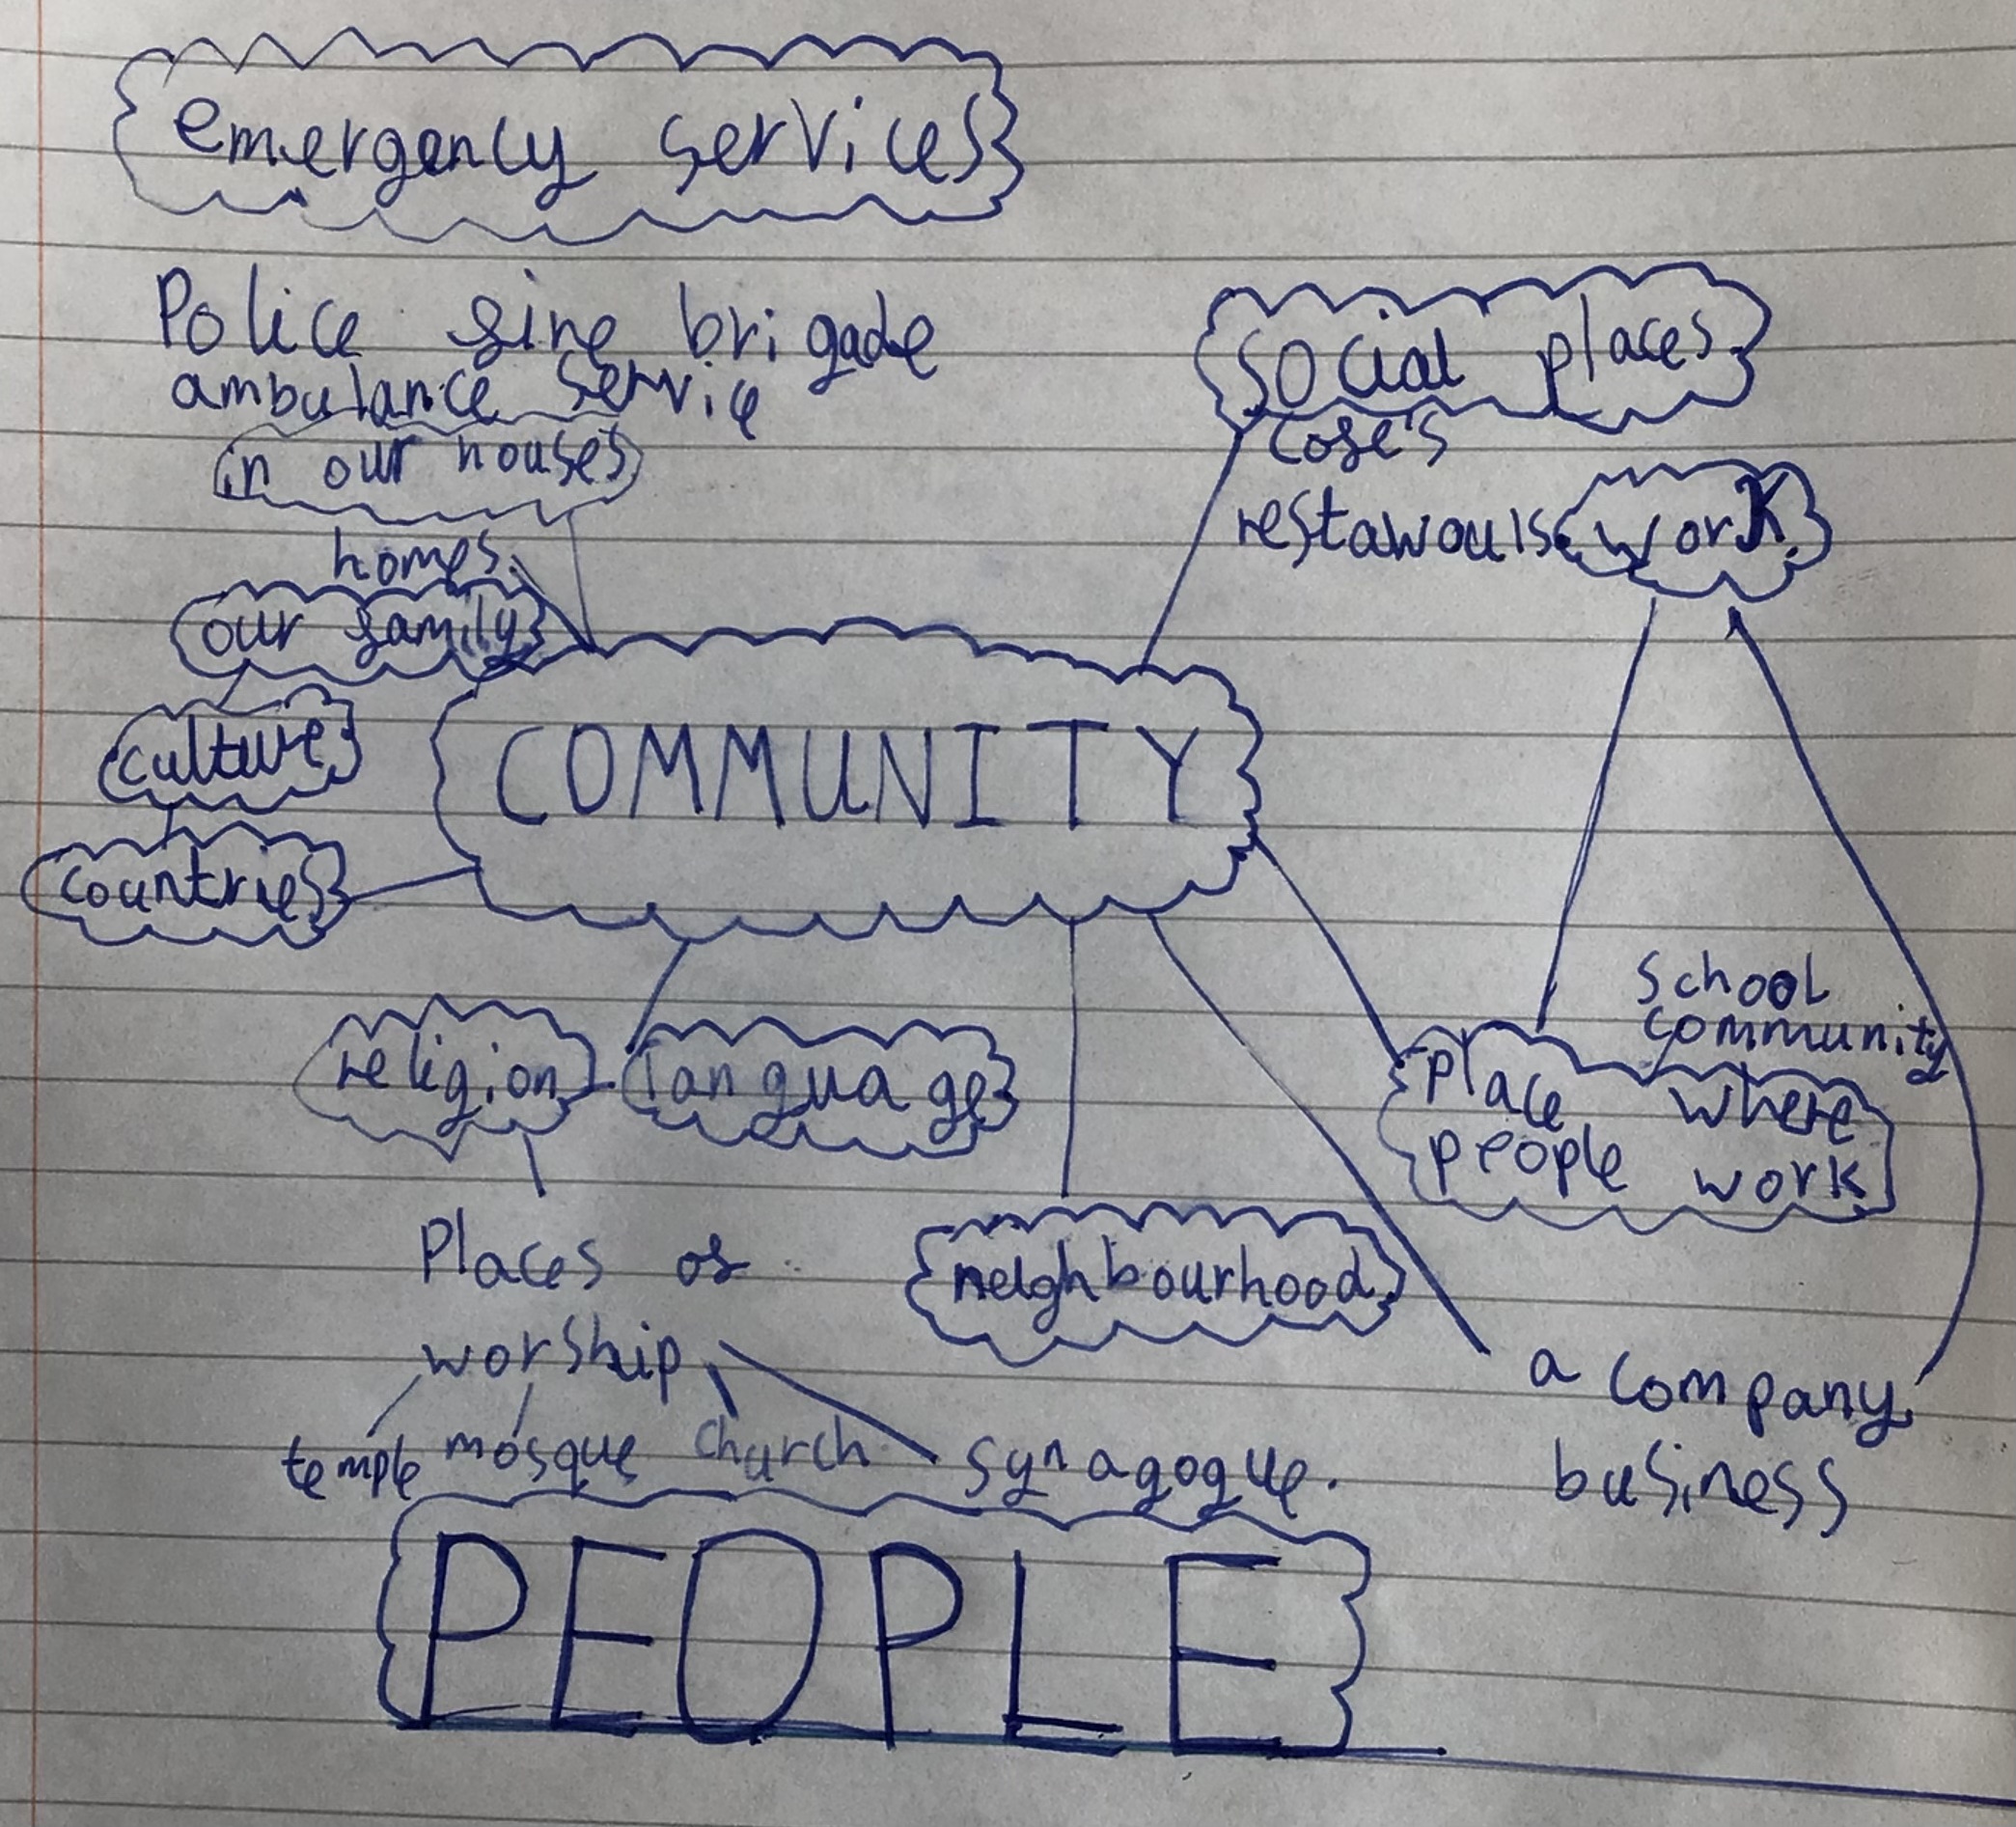 emergency services
Police fire brigade
ambulance service
in our houses
homes.
our family
culture
countries
social places
cafe's
work
COMMUNITY
school
community
religion language
place where
people work
Places of
worship
neighbourhood
temple mosque church synagogue.
a company
business
PEOPLE